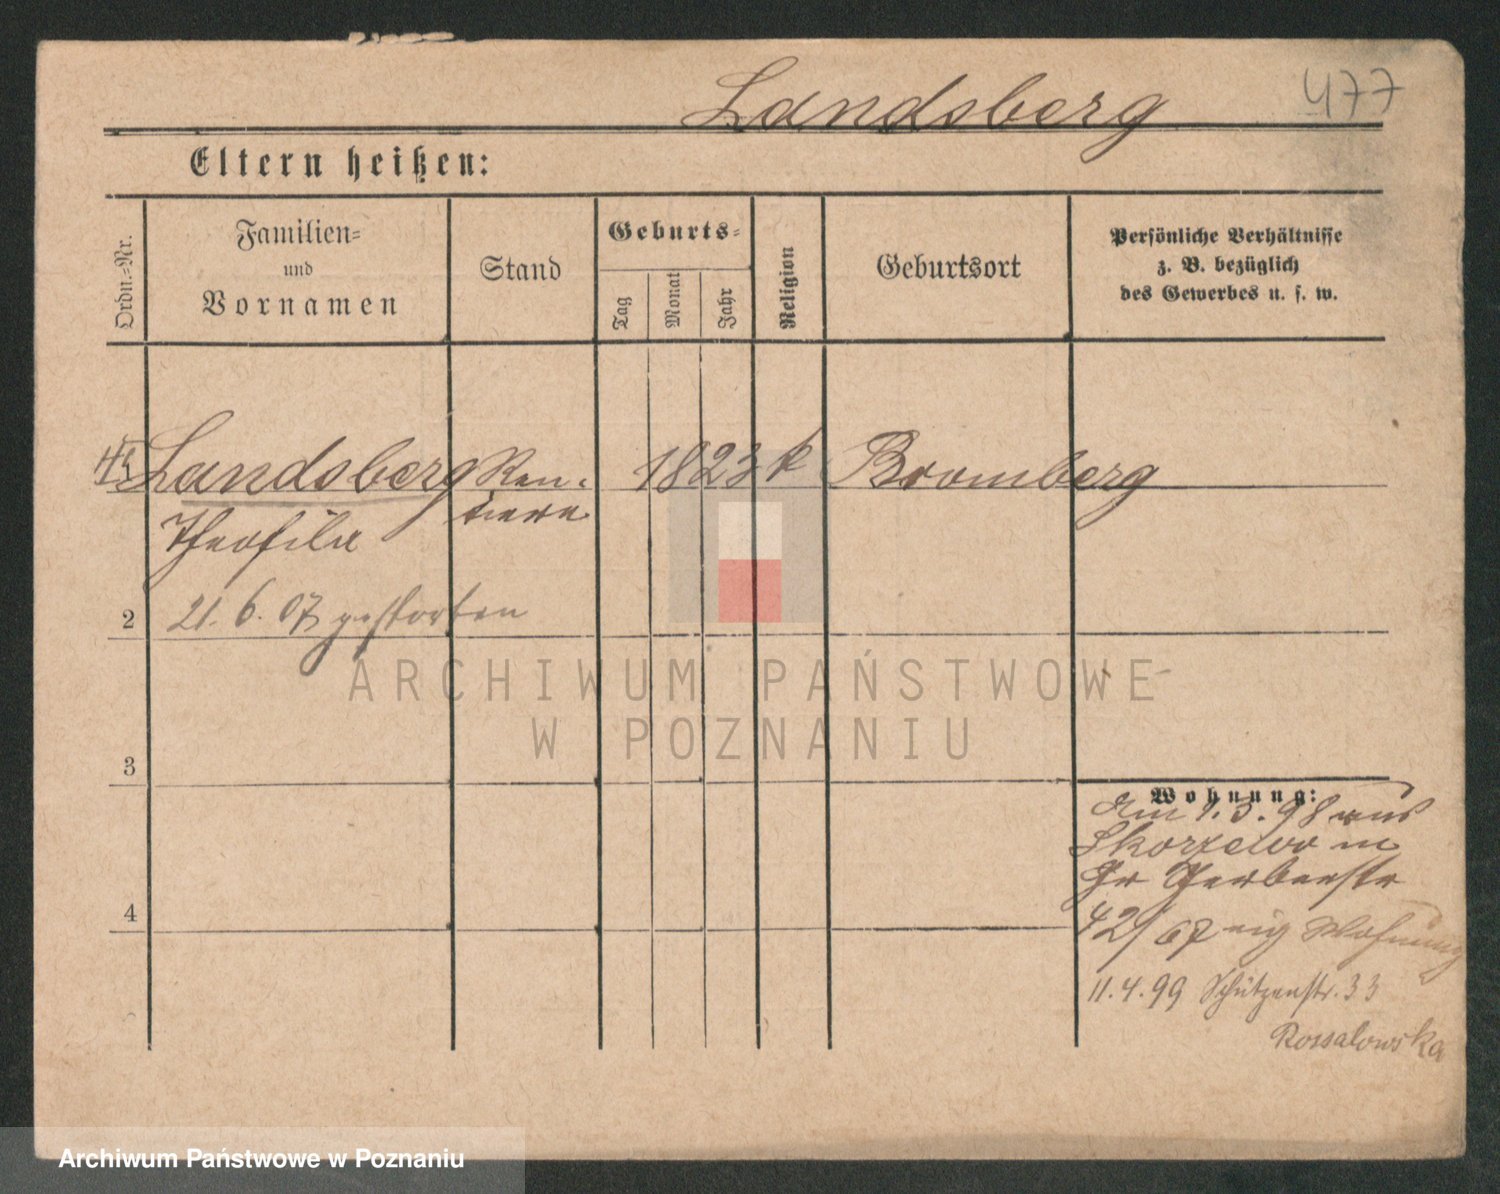 Landsberg 477
Eltern heißen:
Ordn.=Nr.
Familien=
und
Vornamen
Stand
Geburts=
Tag
Monat
Jahr
Religion
Geburtsort
Persönliche Verhältnisse
z. B. bezüglich
des Gewerbes u. s. w.
Landsberg Ren- 1823 k Bromberg
Theofila tiere
2 21. 6. 07 gestorben
3
4
Wohnung:
am 1.3.98 aus
Skorzewo in
Gr Gerberstr
42/67 eig Wohnung
11.4.99 Schützenstr. 33
Rossalowska
ARCHIWUM PAŃSTWOWE
W POZNANIU
Archiwum Państwowe w Poznaniu